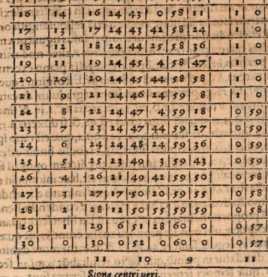 16 14 16 24 43 0 58 11 1 0
17 13 17 24 43 42 58 24 1 0
18 12 18 24 44 25 58 36 1 0
19 11 19 24 45 4 58 47 1 0
20 20 24 45 44 58 58 1 0
21 9 21 24 46 24 59 8 1 0
22 8 22 24 47 4 59 18 0 59
23 7 23 24 47 44 59 27 0 59
24 6 24 24 48 24 59 36 0 59
25 5 25 23 49 3 59 43 0 59
26 4 26 21 49 42 59 50 0 58
27 3 27 17 50 20 59 55 0 58
28 2 28 12 50 55 59 59 0 58
29 1 29 6 51 28 60 0 0 57
30 0 30 0 52 0 60 0 0 57
11 10 9 11
Signa centri veri.